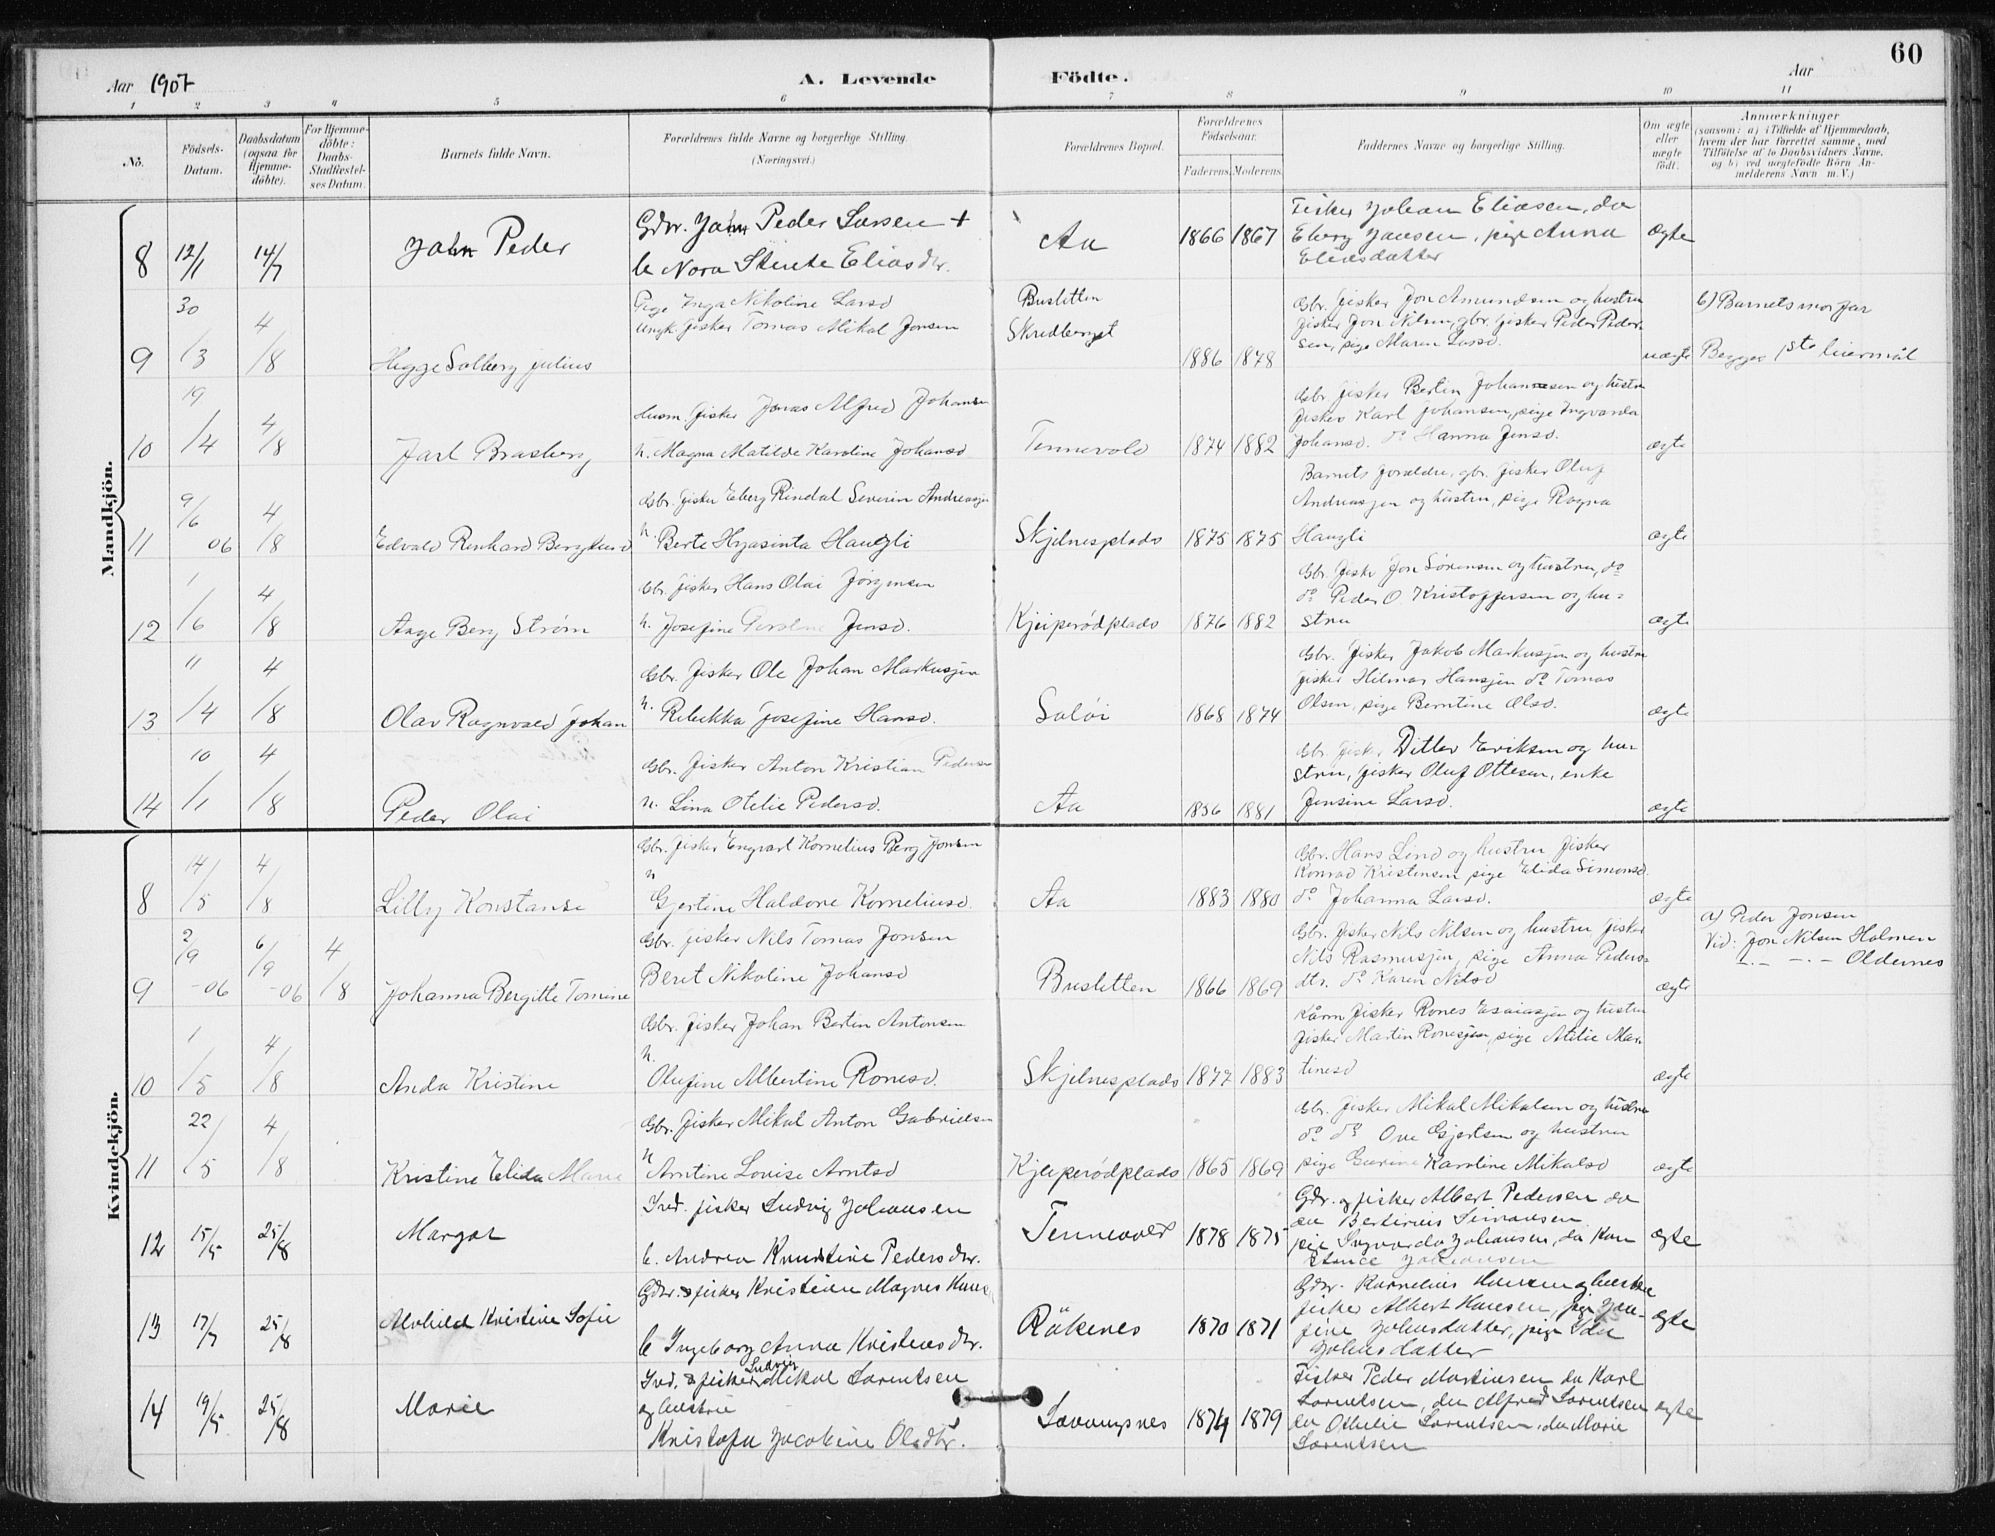 60
Aar 1907
A. Levende Födte.
Aar
1 2 3 4 5 6 7 8 9 10 11
No.
Födsels-Datum.
Daabsdatum (ogsaa for Hjemme-döbte).
For Hjemme-döbte: Daabs-Stadfæstel-ses Datum.
Barnets fulde Navn.
Forældrenes fulde Navne og borgerlige Stilling.
(Næringsvei.)
Forældrenes Bopæl.
Forældrenes Födselsaar.
Faderens. Moderens.
Faddernes Navne og borgerlige Stilling.
Om ægte eller uægte födt.
Anmærkninger
(saasom: a) i Tilfælde af Hjemmedaab, hvem der har forrettet samme, med Tilföielse af to Daabsvidners Navne, og b) ved uægtefödte Börn An-melderens Navn m. V.)
Mandkjön.
8 12/1 14/7 John Peder
Gdbr. John Peder Larsen +
Nora Eliasdtr.
Aa 1866 1867
Fisker Johan Eliasen, do
Eberg Jansen, pige Anna
Eliasdatter
ægte
9 30/3 4/8 Solberg Julius
Pige Inga Nikoline Larsd
Ungk. fisker Tomas Mikal Jensen
Busletten
Skredberget
1886 1878
Gbr. fisker Jon Amundsen og hustru
fisker Jon Nilsen, gbr. fisker Peder Peder-
sen, pige Maren Larsd.
uægte
b) Barnets morfar
Begges 1ste leiermål
10 19/4 4/8 Jarl Brasberg
Husm. fisker Jonas Alfred Johansen
h. Magna Matilde Karoline Johansd
Tennevold 1874 1882
Gbr. fisker Bertin Johannesen og hustru
fisker Karl Johansen, pige Ingvarda
Johansd. do Hanna Jensd.
ægte
11 9/6 06 4/8 Edvald Reinhard Berglund
Gbr. fisker Eberg Rindal Severin Andreasen
h. Berte Hyasinta Haugli
Skjelnesplads 1875 1875
Barnets forældre, gbr. fisker Oluf
Andreasen og hustru, pige Ragna
Haugli
ægte
12 1/6 4/8 Aage Berg Strøm
Gbr. fisker Hans Olai Jørgensen
h. Josefine Jensd.
Kjeiperødplads 1876 1882
Gbr. fisker Jon Sørensen og hustru, do
do Peder O. Kristoffersen og hu-
stru
ægte
13 11/4 4/8 Olav Ragnvald Johan
Gbr. fisker Ole Johan Markussen
h. Rebekka Josefine Hansd.
Saløi 1868 1874
Gbr. fisker Jakob Markussen og hustru
fisker Hilmar Hansen do Tomas
Olsen, pige Berntine Olsd.
ægte
14 10/1 4/8 Peder Olai
Gbr. fisker Anton Kristian Pedersen
h. Lina Otelie Pedersd.
Aa 1856 1881
Gbr. fisker Ditlev Eriksen og hu-
stru, fisker Oluf Ottesen, enke
Jensine Larsd.
ægte
Kvindekjön.
8 14/5 4/8 Lilly Konstanse
Gbr. fisker Engvart Kornelius Berg Jonsen
h
Gjertine Haldore Korneliusd.
Aa 1883 1880
Gbr. Hans Lind og hustru fisker
Konrad Kristensen pige Elida Simonsd.
do Johanna Larsd.
ægte
9 2/9 -06 6/9 -06 4/8 Johanna Bergitte Tomine
Gbr. fisker Nils Tomas Jonsen
Beret Nikoline Johansd
Busletten 1866 1869
Gbr. fisker Nils Nilsen og hustru fisker
Nils Rasmussen, pige Anna Peders-
dtr. do Karen Nilsd
ægte
a) Peder Jonsen
Vid: Jon Nilsen Holmen
-.- -.- Oldernes
10 1/5 4/8 Anda Kristine
Gbr. fisker Johan Bertin Antonsen
h.
Olufine Albertine Ronesd.
Skjelnesplads 1877 1883
Kårm fisker Rones Esaiasen og hustru
fisker Martin Ronesen, pige Atilie Mar-
tinesd
ægte
11 22/5 4/8 Kristine Elida Marie
Gbr. fisker Mikal Anton Gabrielsen
h
Arntine Lovise Arntsd
Kjeiperødplads 1865 1869
Gbr. fisker Mikal Mikalsen og hustru
do do Ove Gjertsen og hustru
pige Karoline Mikalsd
ægte
12 15/5 25/8 Margot
Ind. fisker Ludvig Johansen
Andrea Pedersdtr.
Tennevold 1878 1875
Gdbr. og fisker Albert Pedersen do
Simonsen
pige Ingvarda Johansen, do Kon
stance Johansen
ægte
13 17/7 25/8 Alvhild Kristine Sofie
Gdbr. & fisker Kristian Magnus Hans
Ingeborg Anna Kristensdtr.
Råkenes 1870 1871
Gdbr. Kornelius Hansen og hustru
fisker Albert Hansen, pige Jon-
fine Johnsdatter, pige Ida
Johnsdatter
ægte
14 19/5 25/8 Marie
Ind. & fisker Ludvig Mikal Lorentsen
og hustru
Kristofa Jacobine Olsdtr.
Lavangsnes 1874 1879
Fisker Peder Martinsen do Karl
Lorentsen, do Alfred Lorentsen
Othelie Lorentsen, do Marie
Lorentsen
ægte